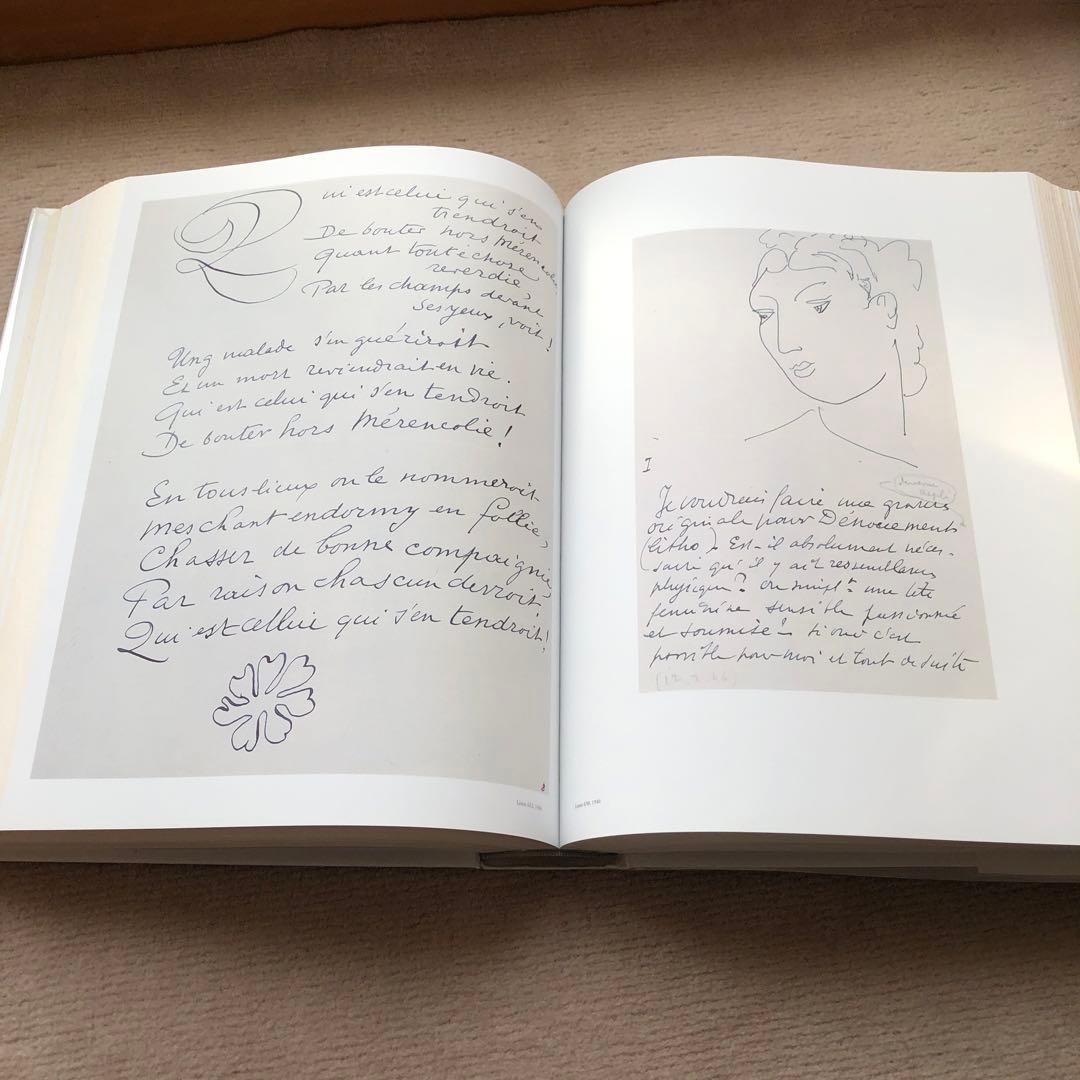 Qui est celui qui s'en
tiendroit
De bouter hors Mérencolie
quant toute chose
reverdie,
Par les champs devant
ses yeux, voit!
Ung malade s'en guériroit
Et un mort reviendrait en vie.
Qui est celui qui s'en tendroit
De bouter hors Mérencolie!
En tous lieux on le nommeroit
meschant endormy en follie,
Chasser de bonne compaignie
Par raison chascun devroit.
Qui est cellui qui s'en tendroit!
1946
I
Je voudrais faire une gravure
originale pour Dénouements
(litho). Est-il absolument néces-
saire qu'il y ait ressemblance
physique? ou une tête
féminine sensible passionnée
et soumise? si oui c'est
possible pour moi et tout de suite
1946